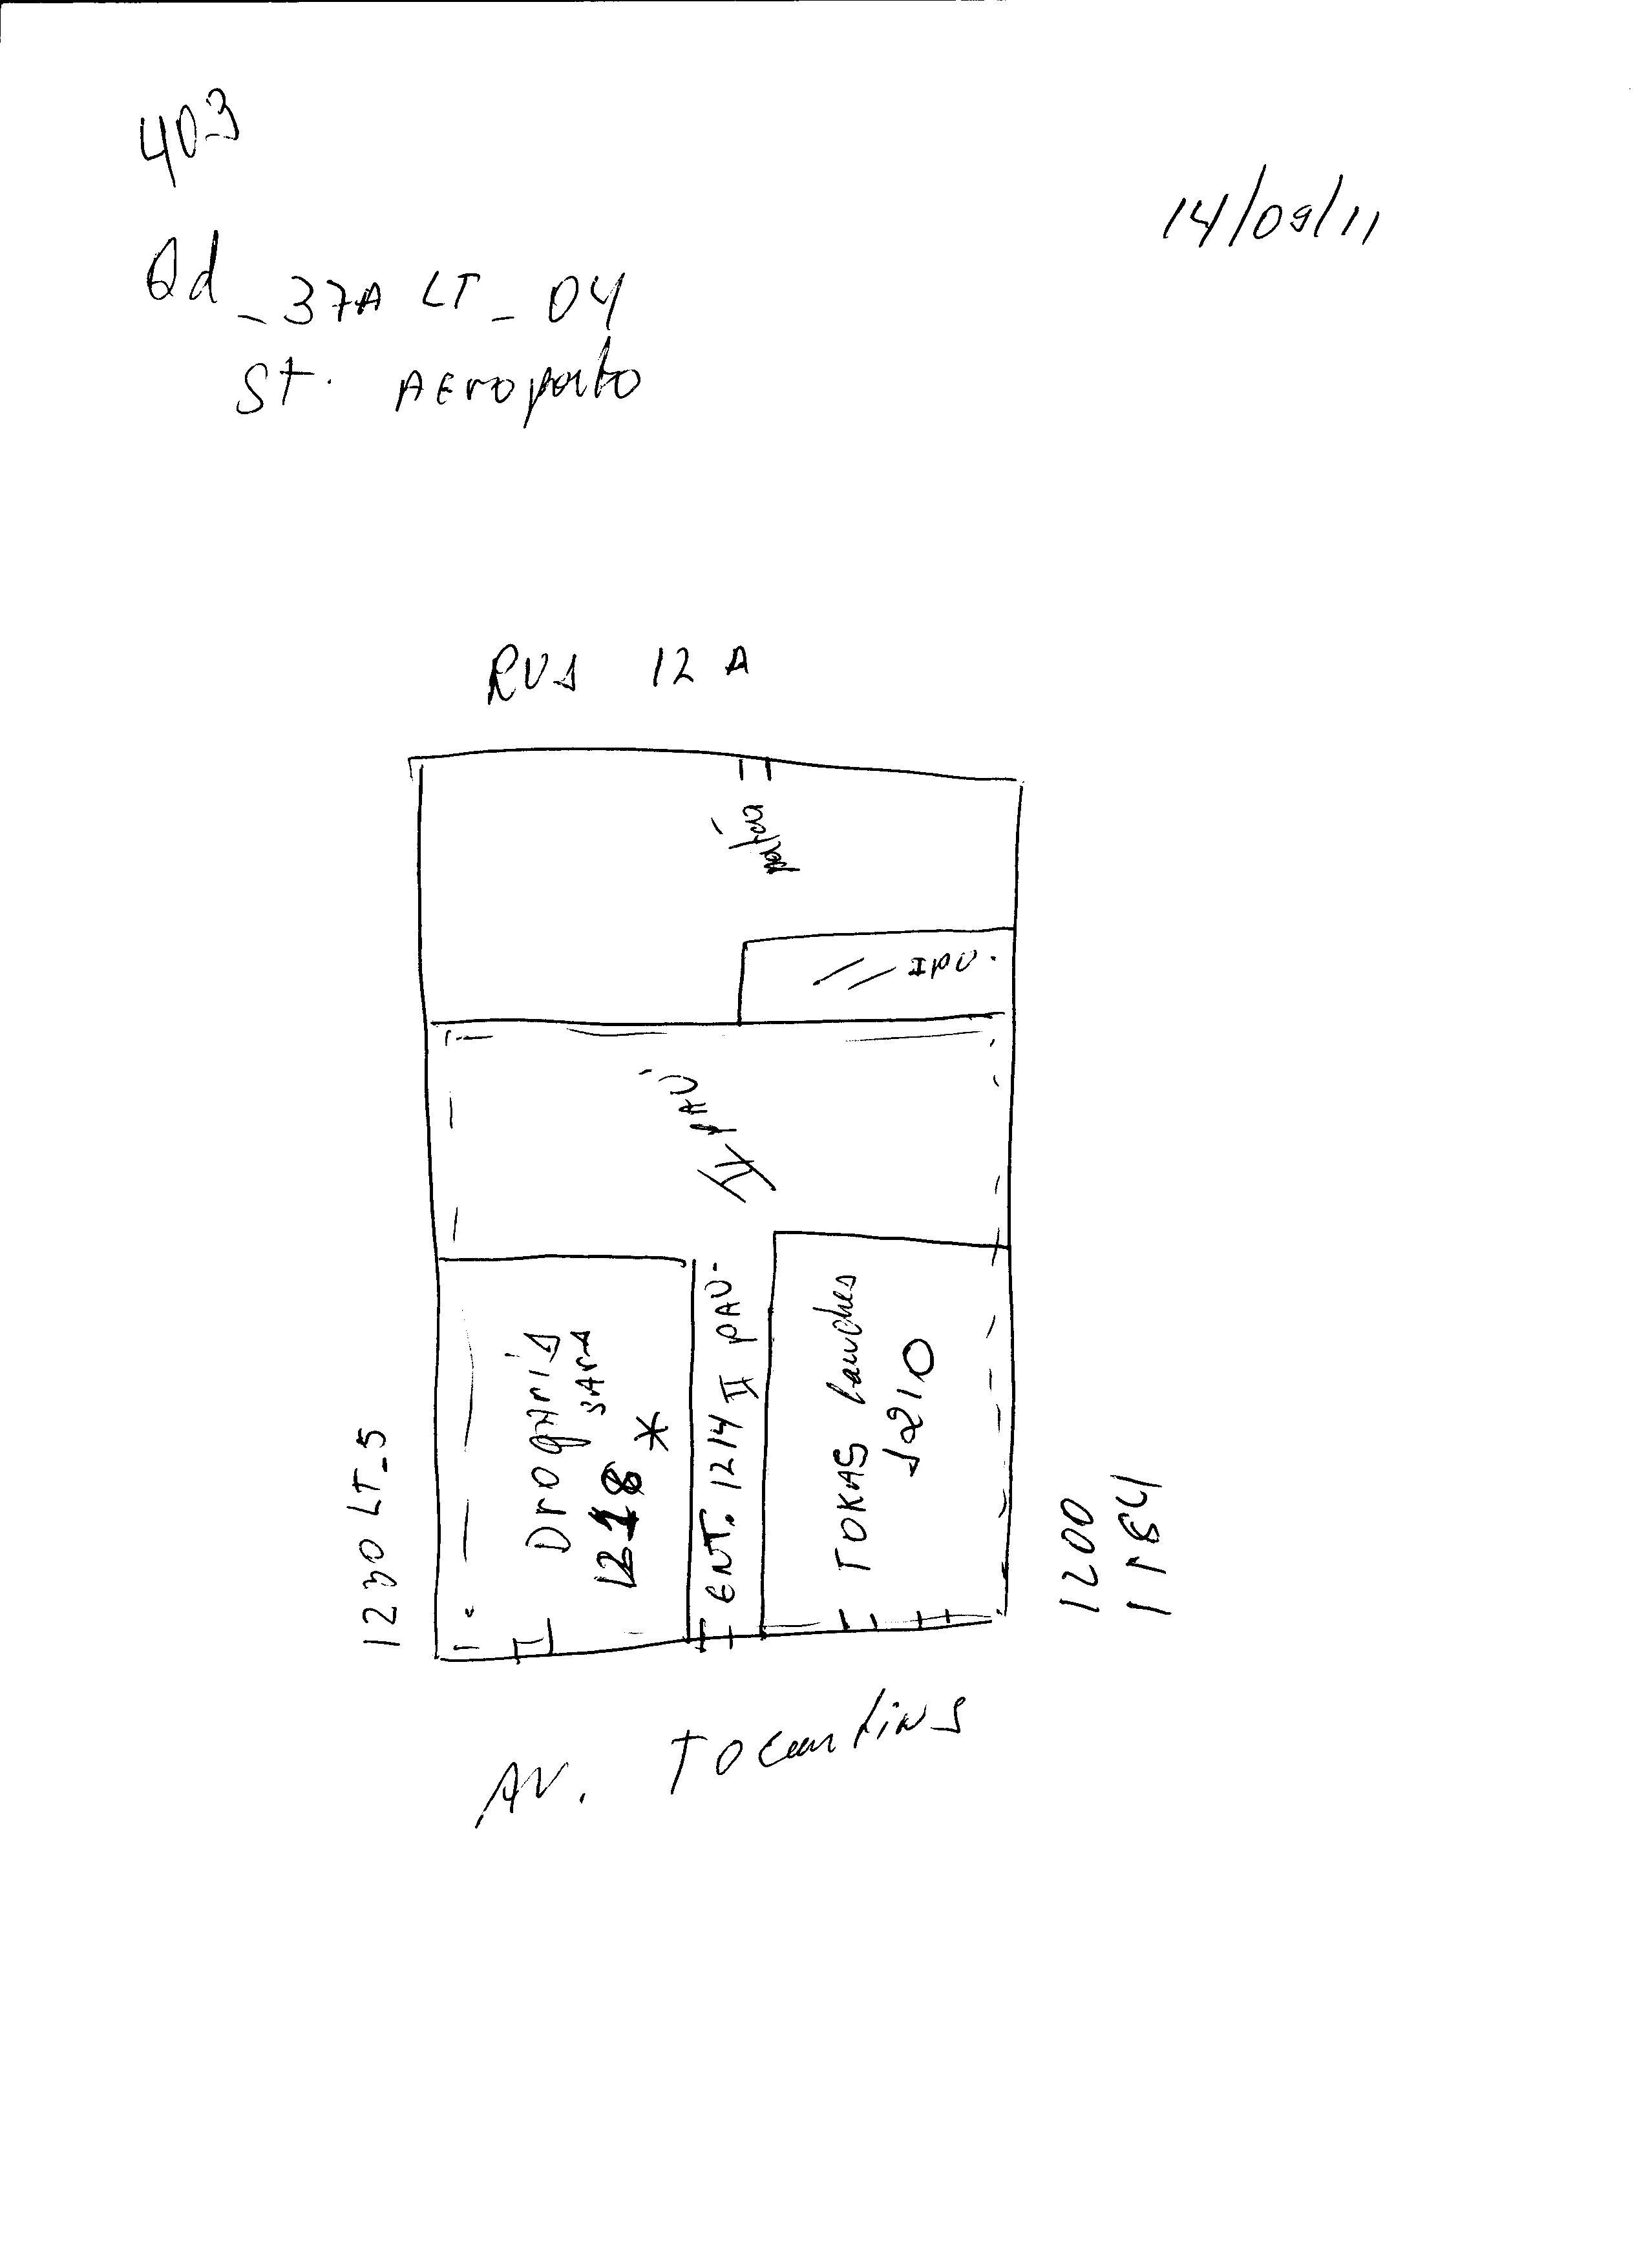 403
14/09/11
Qd - 37A LT - 04
St. AEroporto
RUA 12 A
portão
I PV.
II PAV
Drogaria
SARA
1218 *
ENT. 1214 II PAV.
TOKAS Lanches
1210
1230 LT-5
1200
1184
AV. TOCantins